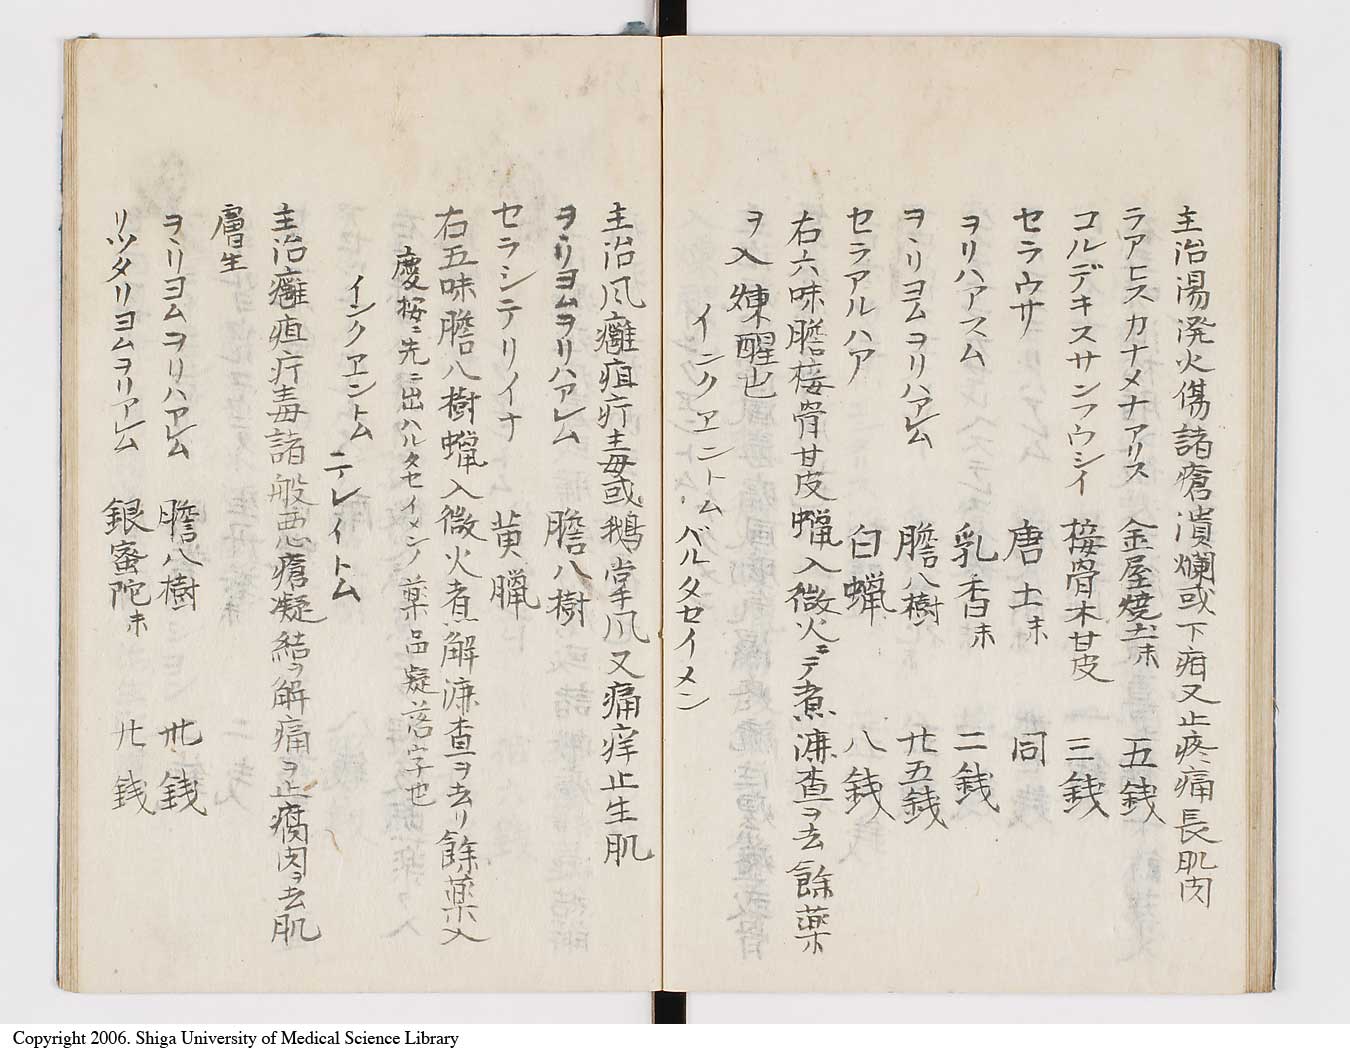 主治湯溌火傷諸瘡潰爛或下疳又止疼痛長肌肉
ラアヒスカナメナアリス 金屋焼土末 五銭
コルデキスサンフウシイ 接骨木甘皮 三銭
セラウサ 唐土末 同
ヲリハアスム 乳香末 二銭
ヲヽリヨムヲリハアレム 膽八樹 廿五銭
セラアルハア 白蝋 八銭
右六味膽接骨甘皮蝋入微火ニテ煮濂査ヲ去餘薬
ヲ入煉醒也
インクヱニトム バルタセイメン
主治風癰疽疔毒或鵝掌風又痛痒止生肌
ヲヽリヨムヲリハアレム 膽八樹
セラシテリイナ 黄臘
右五味膽八樹蝋入微火煮解濂査ヲ去リ餘薬入
慶桉ニ先ニ出ハルタセイメンノ薬品凝落字也
インクヱントム テレイトム
主治癰疽疔毒諸般悪瘡凝結ヲ解痛ヲ止腐肉ヲ去肌
膚生
ヲヽリヨムヲリハアレム 膽八樹 卅銭
リツタリヨムヲリアレム 銀蜜陀末 廿銭
Copyright 2006. Shiga University of Medical Science Library